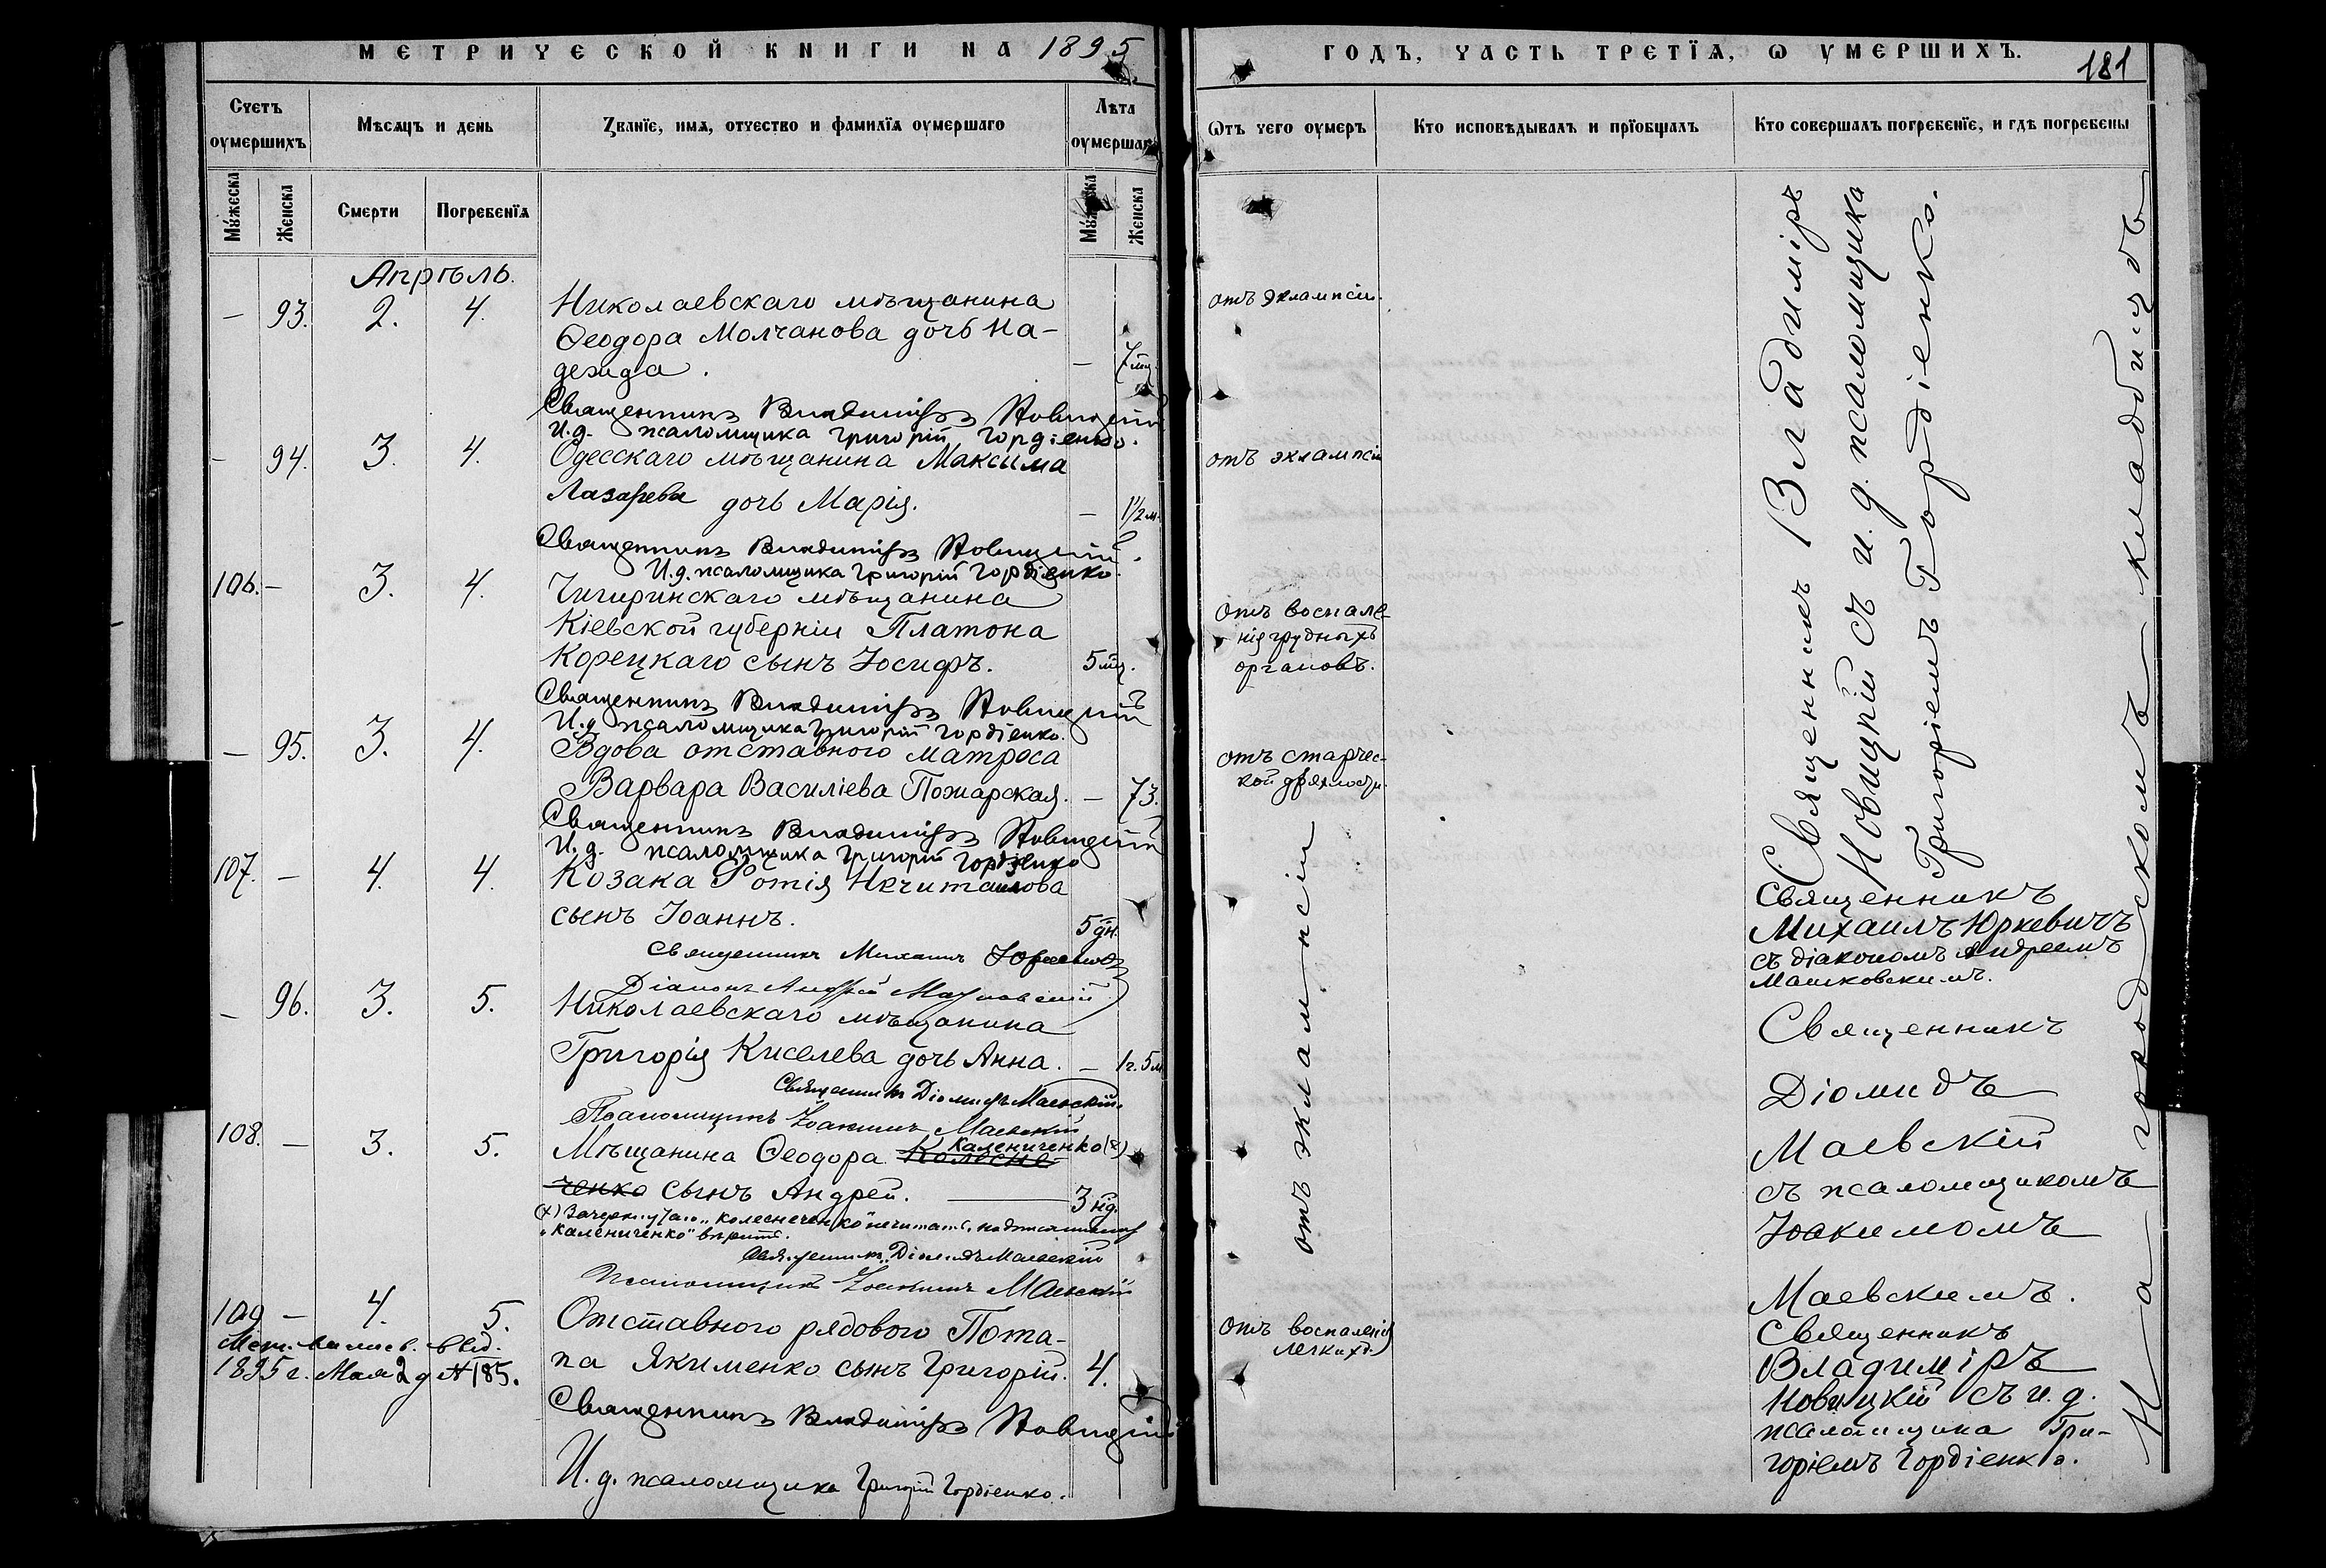 МЕТРИЧЕСКОЙ КНИГИ НА 1895
Счетъ оумершихъ
Мѣсяцъ и день
Званїе, имя, отчество и фамилїя оумершаго
Лѣта оумершаго
Мужеска
Женска
Смерти
Погребенїя
Мужеска
Женска
Апрѣль.
— 93. 2. 4. Николаевскаго мѣщанина
Ѳеодора Молчанова дочь На-
дежда. — 7 мц.
Священникъ Владиміръ Новицкій
И. д. псаломщика Григорій Гордіенко.
— 94. 3. 4. Одесскаго мѣщанина Максима
Лазарева дочь Марія. — 1½ м.
Священникъ Владиміръ Новицкій.
И. д. псаломщика Григорій Гордіенко.
106. — 3. 4. Чигиринскаго мѣщанина
Кіевской губерніи Платона
Корецкаго сынъ Іосифъ. 5 мц.
Священникъ Владиміръ Новицкій
И. д. псаломщика Григорій Гордіенко.
— 95. 3. 4. Вдова отставного матроса
Варвара Василіева Пожарская. — 73.
Священникъ Владиміръ Новицкій
И. д. псаломщика Григорій Гордіенко
107. — 4. 4. Козака Фотія Нечитайлова
сынъ Іоаннъ. 5 дн.
Священникъ Михаилъ Юркевичъ
Діаконъ Андрей Машковскій
— 96. 3. 5. Николаевскаго мѣщанина
Григорія Киселева дочь Анна. — 1 г. 5 м.
Священникъ Діомидъ Маевскій.
Псаломщикъ Іоакимъ Маевскій
Калениченко (х)
108. — 3. 5. Мѣщанина Ѳеодора Колесне-
ченко сынъ Андрей. — 3 нд.
(х) Зачеркнутаго „Колеснеченко" нечитать, надписанному
„Калениченко" вѣрить.
Священникъ Діомидъ Маевскій
Псаломщикъ Іоакимъ Маевскій
109 — 4. 5. Отставного рядового Пота-
па Якименко сынъ Григорій. 4.
Мет. выпись. выд.
1895 г. Мая 2 д № 185.
Священникъ Владиміръ Новицкій
И. д. псаломщика Григорій Гордіенко.
ГОДЪ, ЧАСТЬ ТРЕТЇЯ, Ѡ УМЕРШИХЪ.
181
Ѿтъ чего оумеръ
Кто исповѣдывалъ и прїобщалъ
Кто совершалъ погребенїе, и гдѣ погребены
отъ эклампсіи.
отъ эклампсіи
отъ воспале-
нія грудныхъ
органовъ.
отъ старчес-
кой дряхлости.
отъ эклампсіи
отъ воспаленія
легкихъ.
Священникъ Владиміръ
Новицкій съ и. д. псаломщика
Григоріемъ Гордіенко.
Священникъ
Михаилъ Юркевичъ
съ діакономъ Андреемъ
Машковскимъ.
Священникъ
Діомидъ
Маевскій
съ псаломщикомъ
Іоакимомъ
Маевскимъ.
Священникъ
Владиміръ
Новицкій съ и. д.
псаломщика Гри-
горіемъ Гордіенко.
На городскомъ кладбищѣ